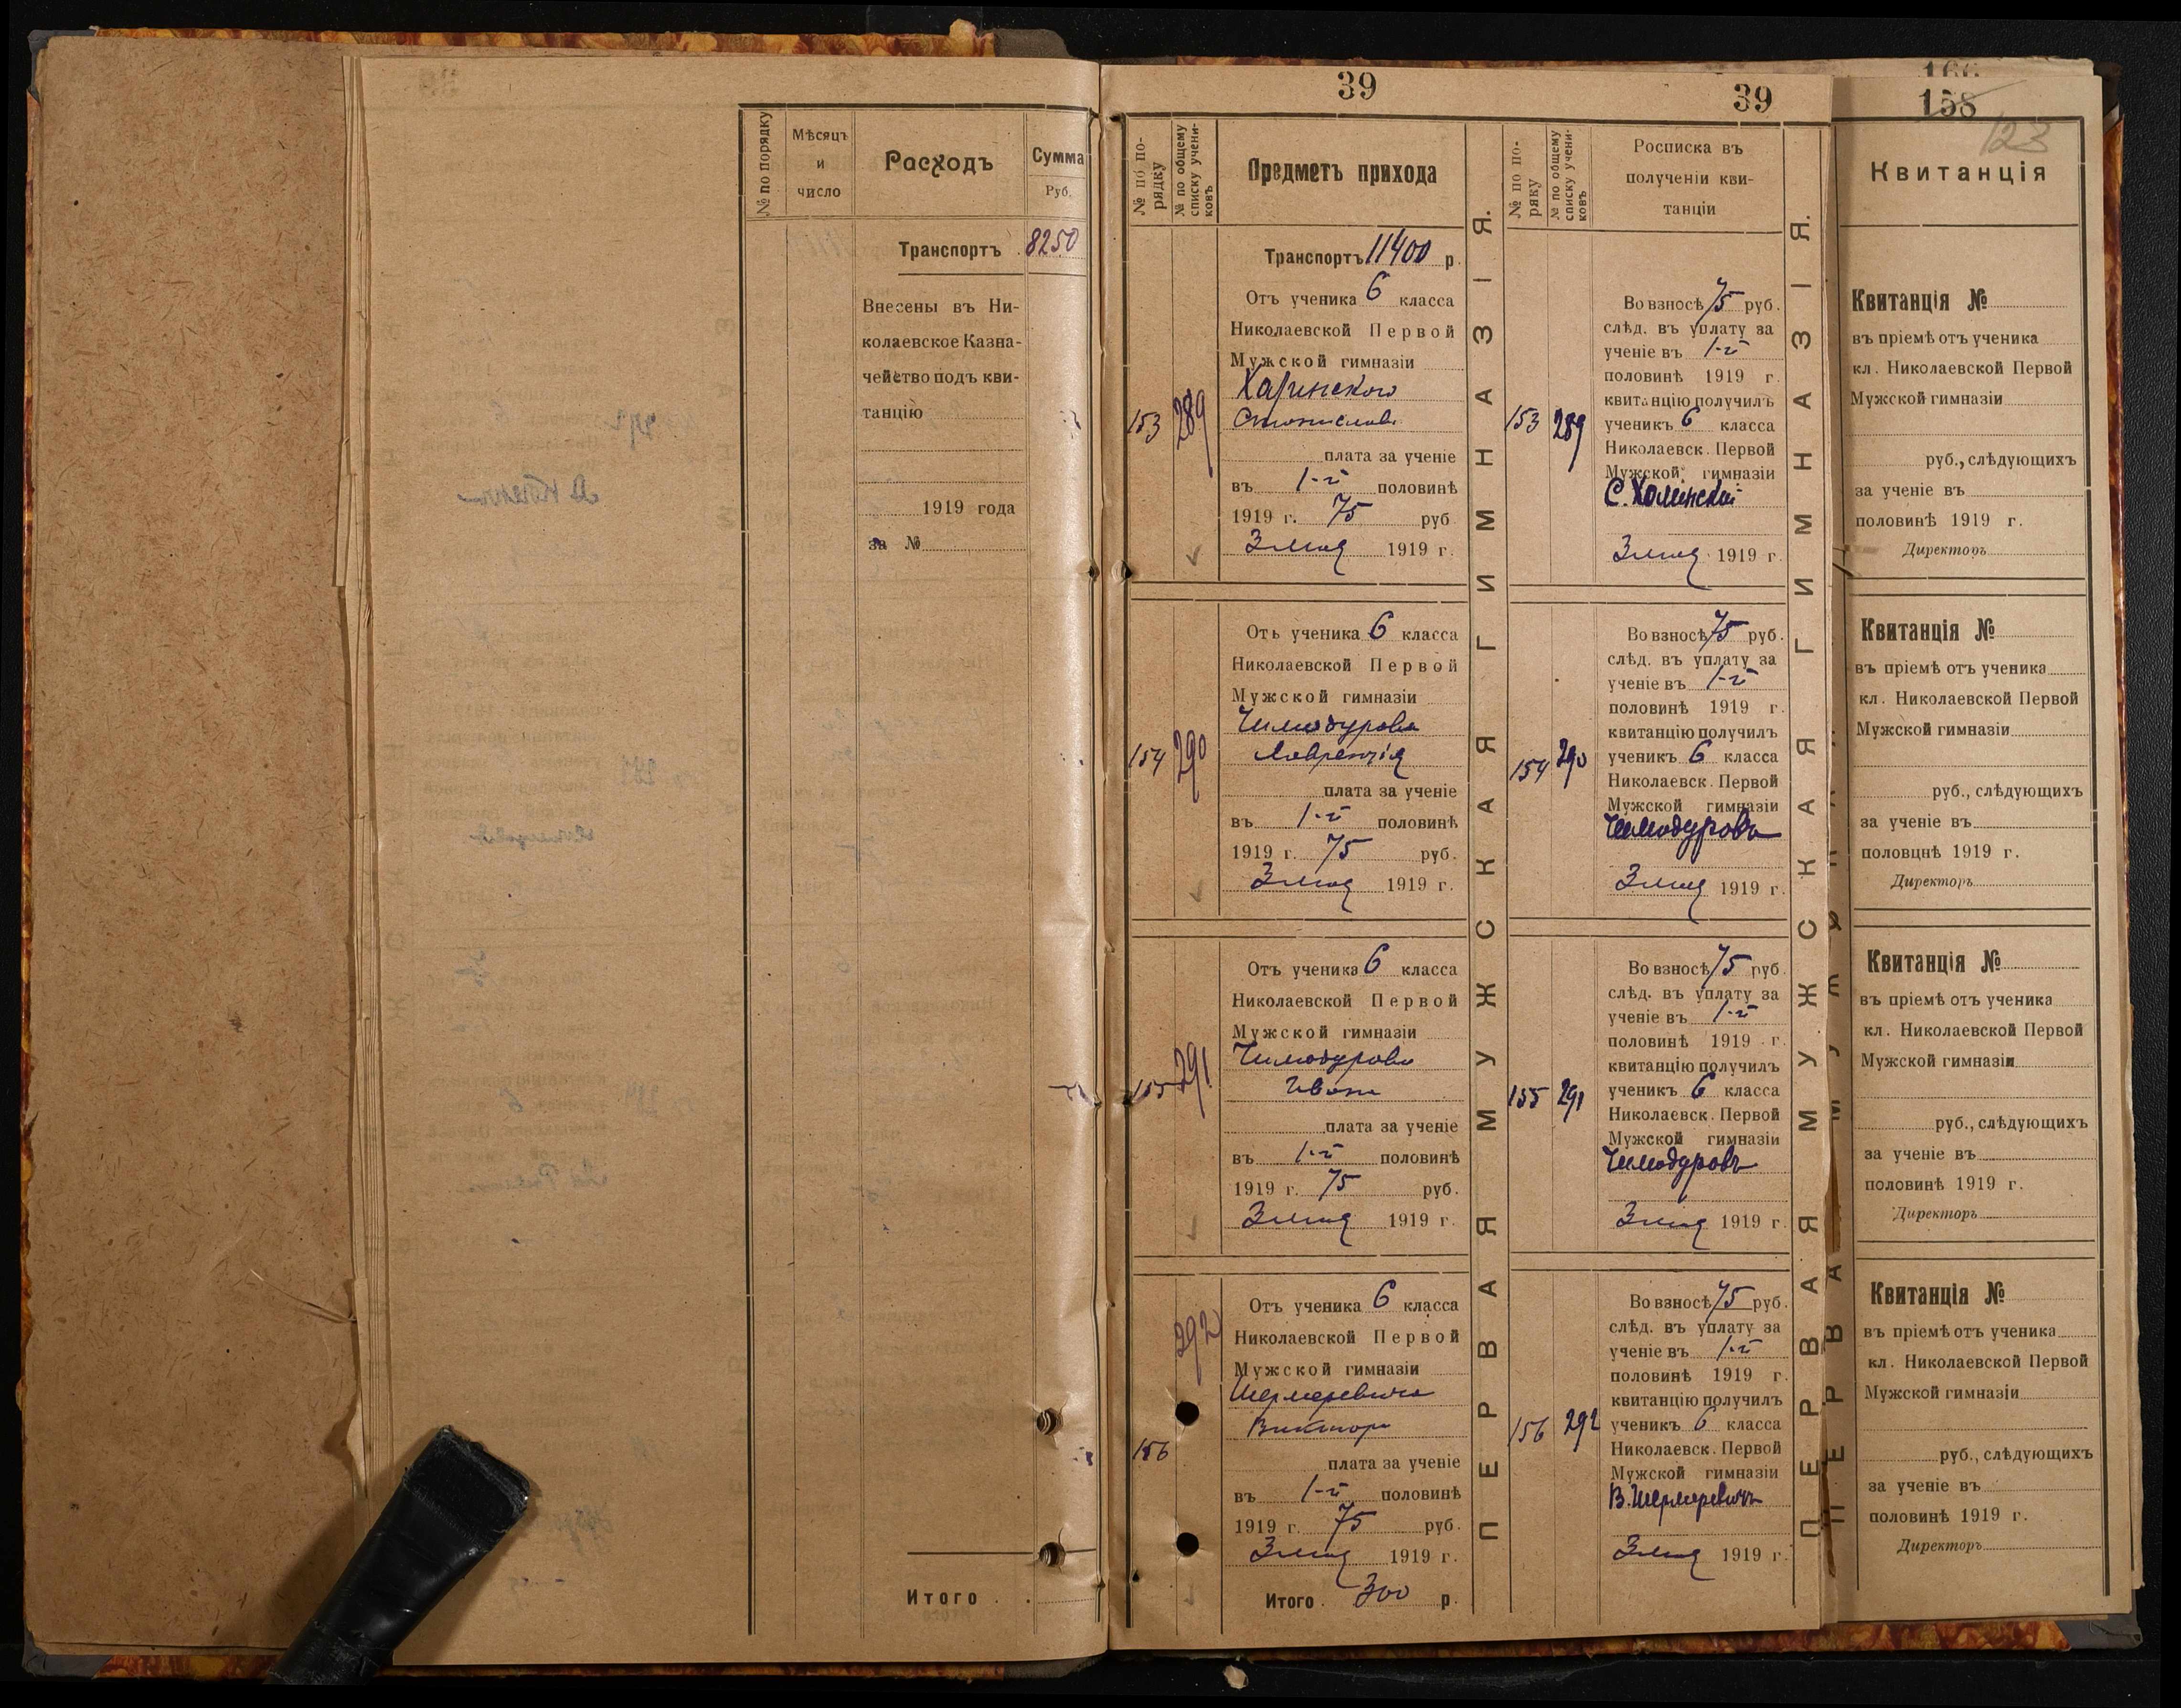 № по порядку
Мѣсяцъ
и
число
Расходъ
Сумма
Руб.
Транспортъ 8250
Внесены въ Ни-
колаевское Казна-
чейство подъ кви-
танцію
1919 года
за №
Итого
39
№ по по-
рядку
№ по общему
списку учени-
ковъ
Предметъ прихода
Транспортъ 11400 р.
153
289
Отъ ученика 6 класса
Николаевской Первой
Мужской гимназіи
Станислава
плата за ученіе
въ 1-й половинѣ
1919 г. 75 руб
3 мая 1919 г.
154
290
Отъ ученика 6 класса
Николаевской Первой
Мужской гимназіи
Чимодурова
Лаврентія
плата за ученіе
въ 1-й половинѣ
1919 г. 75 руб.
3 мая 1919 г.
155
291
Отъ ученика 6 класса
Николаевской Первой
Мужской гимназіи
Чимодурова
Ивана
плата за ученіе
въ 1-й половинѣ
1919 г. 75 руб.
3 мая 1919 г.
156
292
Отъ ученика 6 класса
Николаевской Первой
Мужской гимназіи
Шермеревича
Виктора
плата за ученіе
въ 1-й половинѣ
1919 г. 75 руб.
3 мая 1919 г.
Итого 300 р.
ПЕРВАЯ МУЖСКАЯ ГИМНАЗІЯ.
39
№ по по-
ряку
№ по общему
списку учени-
ковъ
Росписка въ
полученіи кви-
танціи
153
289
Во взносѣ 75 руб.
слѣд. въ уплату за
ученіе въ 1-й
половинѣ 1919 г.
квитанцію получилъ
ученикъ 6 класса
Николаевск. Первой
Мужской гимназіи
3 мая 1919 г.
154
290
Во взносѣ 75 руб.
слѣд. въ уплату за
ученіе въ 1-й
половинѣ 1919 г.
квитанцію получилъ
ученикъ 6 класса
Николаевск. Первой
Мужской гимназіи
Чимодуровъ
3 мая 1919 г.
155
291
Во взносѣ 75 руб
слѣд. въ уплату за
ученіе въ 1-й
половинѣ 1919 г.
квитанцію получилъ
ученикъ 6 класса
Николаевск. Первой
Мужской гимназіи
Чимодуровъ
3 мая 1919 г.
156
292
Во взносѣ 75 руб.
слѣд. въ уплату за
ученіе въ 1-й
половинѣ 1919 г.
квитанцію получилъ
ученикъ 6 класса
Николаевск. Первой
Мужской гимназіи
В. Шермеревичъ
3 мая 1919 г.
ПЕРВАЯ МУЖСКАЯ ГИМНАЗІЯ.
166
158
123
Квитанція
Квитанція №
въ пріемѣ отъ ученика
кл. Николаевской Первой
Мужской гимназіи
руб., слѣдующихъ
за ученіе въ
половинѣ 1919 г.
Директоръ
Квитанція №
въ пріемѣ отъ ученика
кл. Николаевской Первой
Мужской гимназіи
руб., слѣдующихъ
за ученіе въ
половцнѣ 1919 г.
Директоръ
Квитанція №
въ пріемѣ отъ ученика
кл. Николаевской Первой
Мужской гимназіи
руб., слѣдующихъ
за ученіе въ
половинѣ 1919 г.
Директоръ
Квитанція №
въ пріемѣ отъ ученика
кл. Николаевской Первой
Мужской гимназіи
руб., слѣдующихъ
за ученіе въ
половинѣ 1919 г.
Директоръ